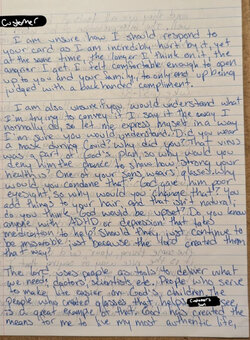 Customer
I am unsure how I should respond to
your card as I am incredibly hurt by it, yet
at the same time, the longer I think on it the
angrier I get. I felt comfortable enough to open
up to you and your family, to only end up being
judged with a backhanded compliment.
I am also unsure if you would understand
what I'm trying to convey if I say it the way I
normally do, so let me express myself in a way
I am sure you would understand. Did you wear
a mask during Covid? Why did you? That virus
was a part of God's plan, so why would you
deny him the chance to show how strong your
health is? One of your sons wears glasses. Why
would you condone that? God gave him poor
eyesight so why would you change that? You
add things to your hair, and that isn't natural;
do you think God would be upset? Do you know
people with ADHD or depression that take
medication to help should they just continue to
be miserable just because the Lord created them
that way?
The Lord uses people as tools to deliver what
we need; doctors, scientists etc. People who serve
to make life easier on God's children. The
people who created glasses that helps
Customer's
son
see,
is a great example of that. God has created the
means for me to live my most authentic life,